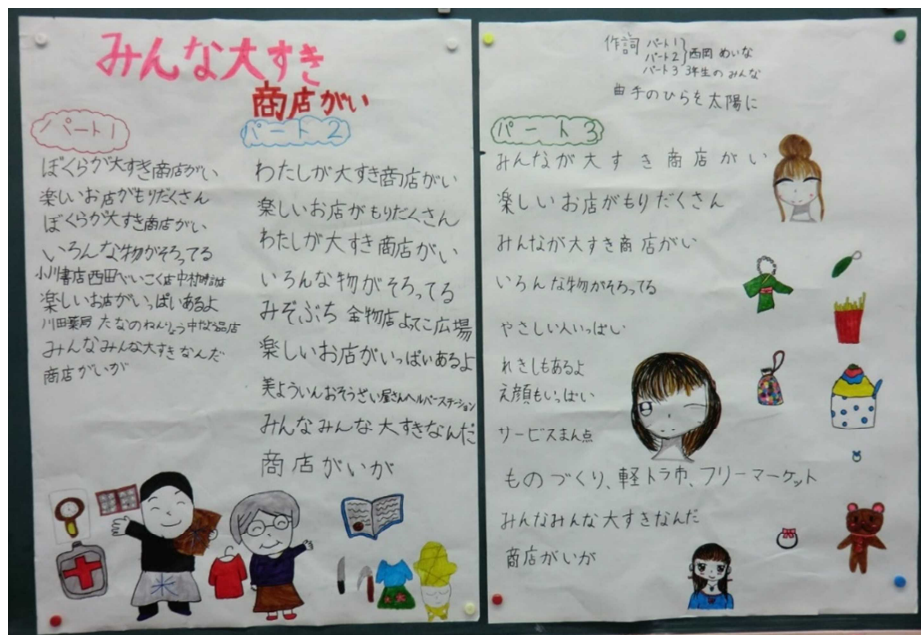 みんな大すき
商店がい
パート1
ぼくらが大すき商店がい
楽しいお店がもりだくさん
ぼくらが大すき商店がい
いろんな物がそろってる
小川書店 西田べいこく店 中村時計
楽しいお店がいっぱいあるよ
川田薬局 たなのねんりょう
みんなみんな大すきなんだ
商店がいが
パート2
わたしが大すき商店がい
楽しいお店がもりだくさん
わたしが大すき商店がい
いろんな物がそろってる
みぞぶち金物店よてこ広場
楽しいお店がいっぱいあるよ
美よういんおそうざい屋さんヘルパーステーション
みんなみんな大すきなんだ
商店がいが
作詞 パート1
パート2 西岡 めいな
パート3 3年生のみんな
曲 手のひらを太陽に
パート3
みんなが大すき商店がい
楽しいお店がもりだくさん
みんなが大すき商店がい
いろんな物がそろってる
やさしい人いっぱい
れきしもあるよ
え顔もいっぱい
サービスまん点
ものづくり、軽トラ市、フリーマーケット
みんなみんな大すきなんだ
商店がいが